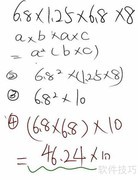 6.8×1.25×6.8×8
a×b×a×c
=a²(b×c)
② 6.8²×(1.25×8)
③ 6.8²×10
④ (6.8×6.8)×10
=46.24×10
软件技巧